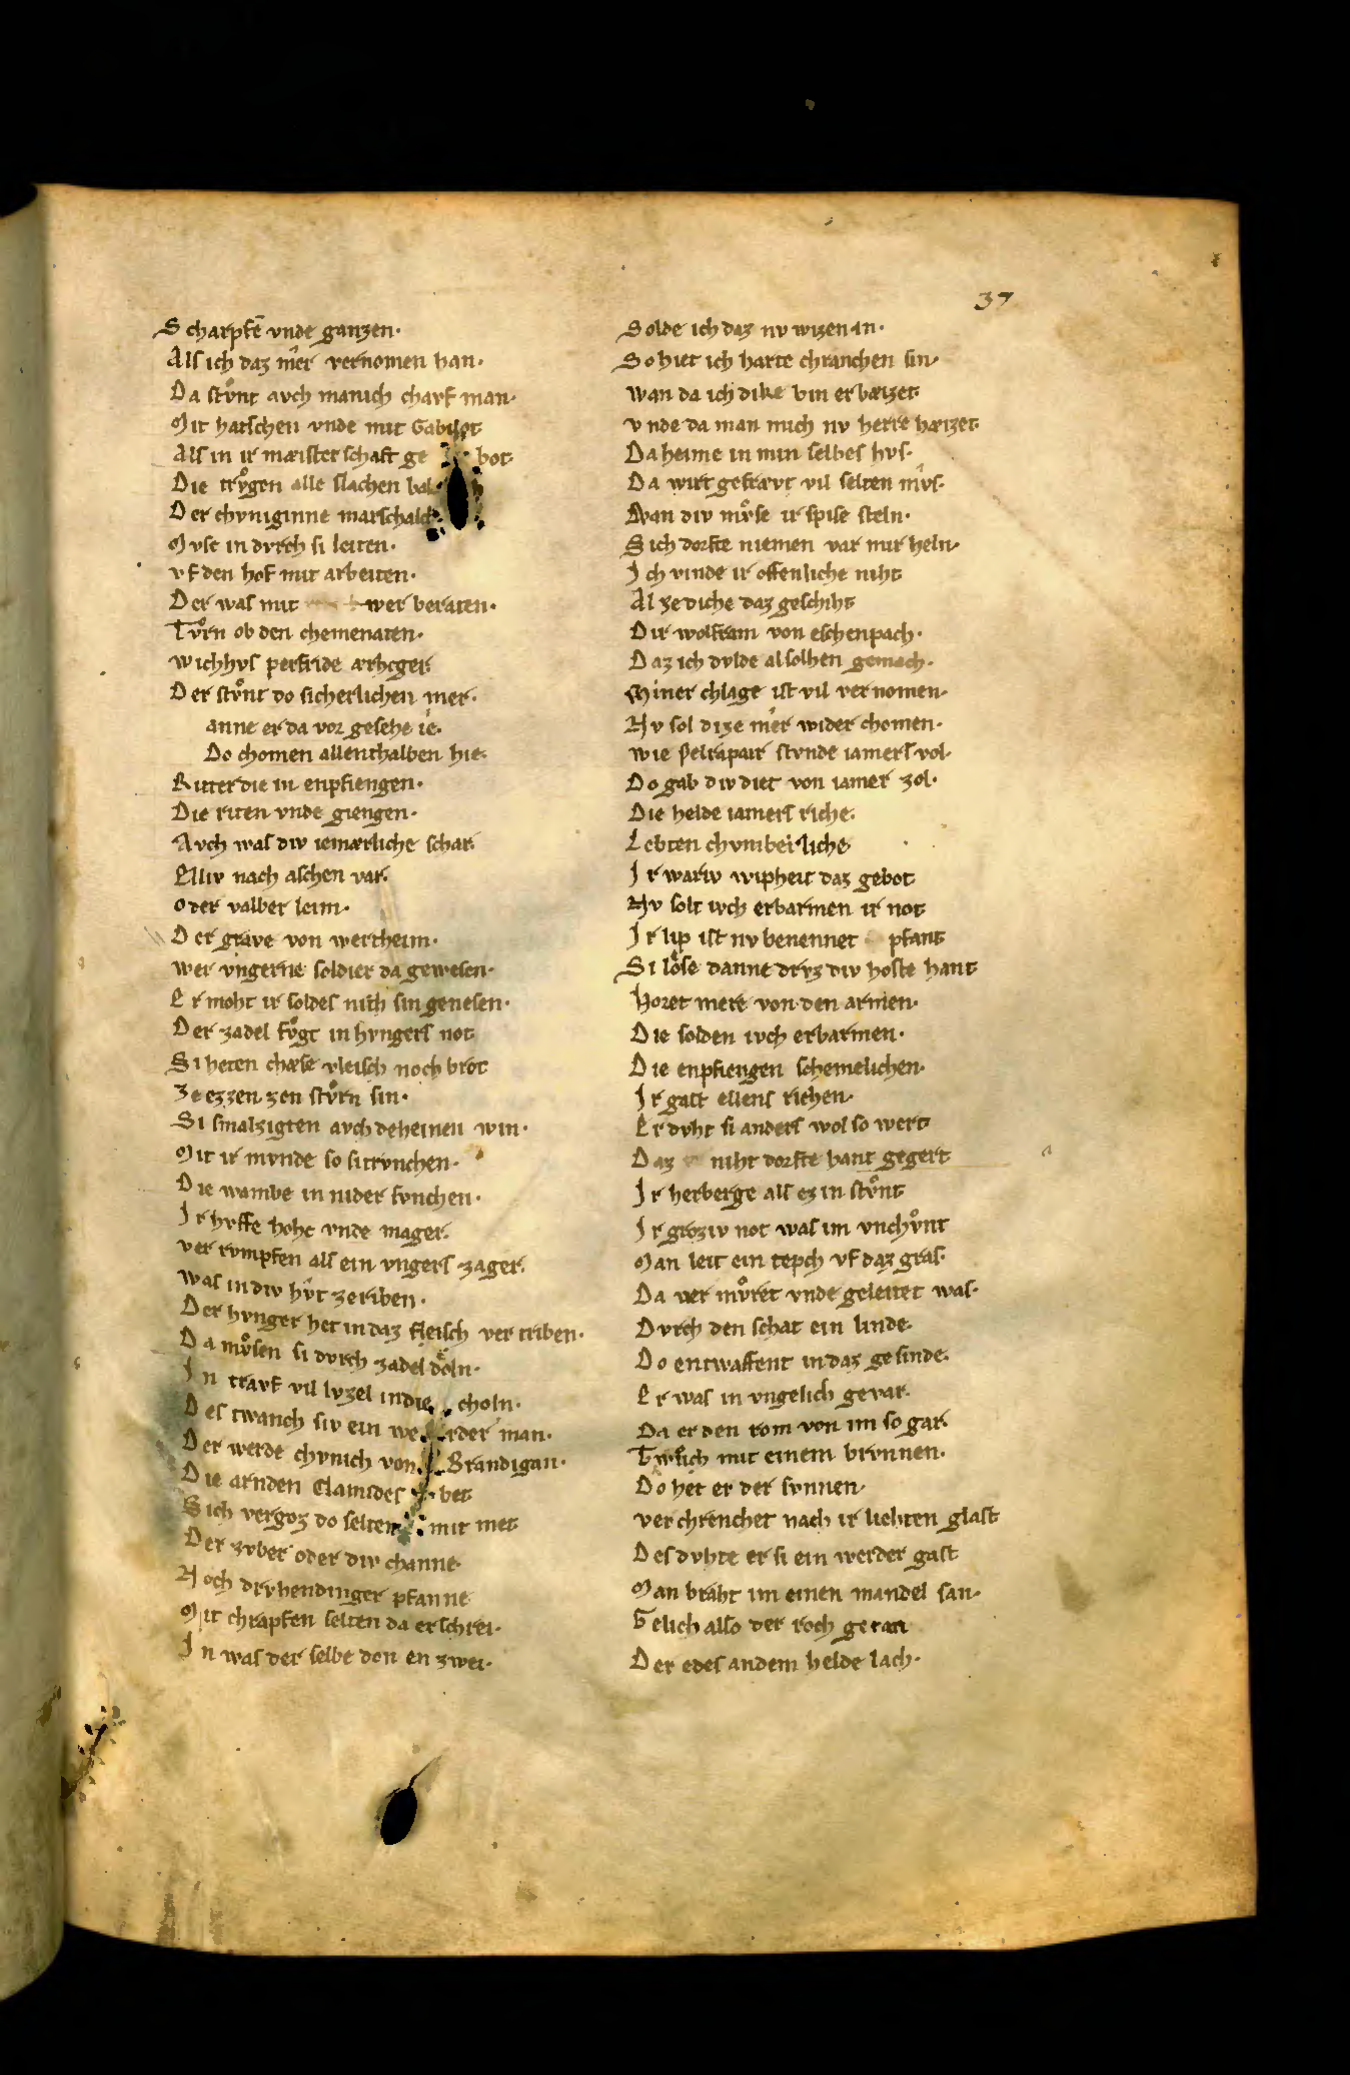 37
Scharpfē vnde ganzen·
Als ich daz mer vernomen han·
Da stvͦnt avch manich charf man·
Mit hatschen vnde mit Gabilot
Als in ir mæisterschaft ge bot
Die trvͦgen alle slachen
Der chvniginne marschalch
Mvse in dvrch si leiten·
vf den hof mit arbeiten·
Der was mit wer beraten·
Tvͦrn ob den chemenaten·
wichhvs perfride ærhcger
Der stvͦnt do sicherlichen mer·
anne er da vor gesehe ie·
Do chomen allenthalben hie·
Ritter die in enpfiengen·
Die riten vnde giengen·
Avch was div iemærliche schar
Elliv nach aschen var·
oder valber leim·
Der grave von wertheim·
wer vngerne soldier da gewesen·
Er moht ir soldes niht sin genesen·
Der zadel fvͦgt in hvngers not
Si heten chæse vleisch noch brot
Ze ezzen zen stvͦrn sin·
Si smalzigten avch deheinen win·
Mit ir mvnde so si trvnchen·
Die wambe in nider svnchen·
Ir hvffe hohe vnde mager·
ver rvmpfen als ein vngers zager·
was in div hvt ze riben·
Der hvnger het in daz fleisch ver triben·
Da mvͦsen si dvrch zadel doln·
In travf vil lvzel in die choln·
Des twanch siv ein we rder man·
Der werde chvnich von Brandigan·
Die arnden Clamides bet
Sich vergoz do selten mit met
Der zvber oder div channe·
Noch drvhendinger pfanne
Mit chrapfen selten da erschrei·
In was der selbe don en zwei·
Solde ich daz nv wizen in·
So hiet ich harte chranchen sin·
wan da ich dike bin erbæizet·
vnde da man mich nv herre hæizet·
Da heime in min selbes hvs·
Da wirt gefrævt vil selten mvs·
wan div mvͦse ir spise steln·
Sich dorfte niemen var mir heln·
Ich vinde ir offenliche niht
Al ze diche daz geschiht
Dir wolfram von eschenpach·
Daz ich dvlde alsolhen gemach·
Miner chlage ist vil vernomen·
Nv sol dize mer wider chomen·
wie Pelrapair stvnde iamers vol·
Do gab div diet von iamer zol·
Die helde iamers riche·
Lebten chvmberliche
Ir wariv wipheit daz gebot
Nv solt ivch erbarmen ir not
Ir lip ist nv benennet pfant
Si lose danne drvz div hoste hant
Horet mere von den armen·
Die solden ivch erbarmen·
Die enpfiengen schemelichen·
Ir gast ellens richen·
Er dvht si anders wol so wert
Daz niht dorfte hant gegert
Ir herberge als ez in stvͦnt
Ir groziv not was im vnchvͦnt
Man leit ein tepch vf daz gras·
Da ver mvͦret vnde geleitet was·
Dvrch den schat ein linde·
Do entwaffent in daz gesinde·
Er was in vngelich gevar·
Da er den rom von im so gar
Twͦsich mit einem brvnnen·
Do het er der svnnen·
ver chrenchet nach ir liehten glast
Des dvhte er si ein werder gast
Man braht im einen mandel san·
Gelich also der roch getan
Der edes andem helde lach·